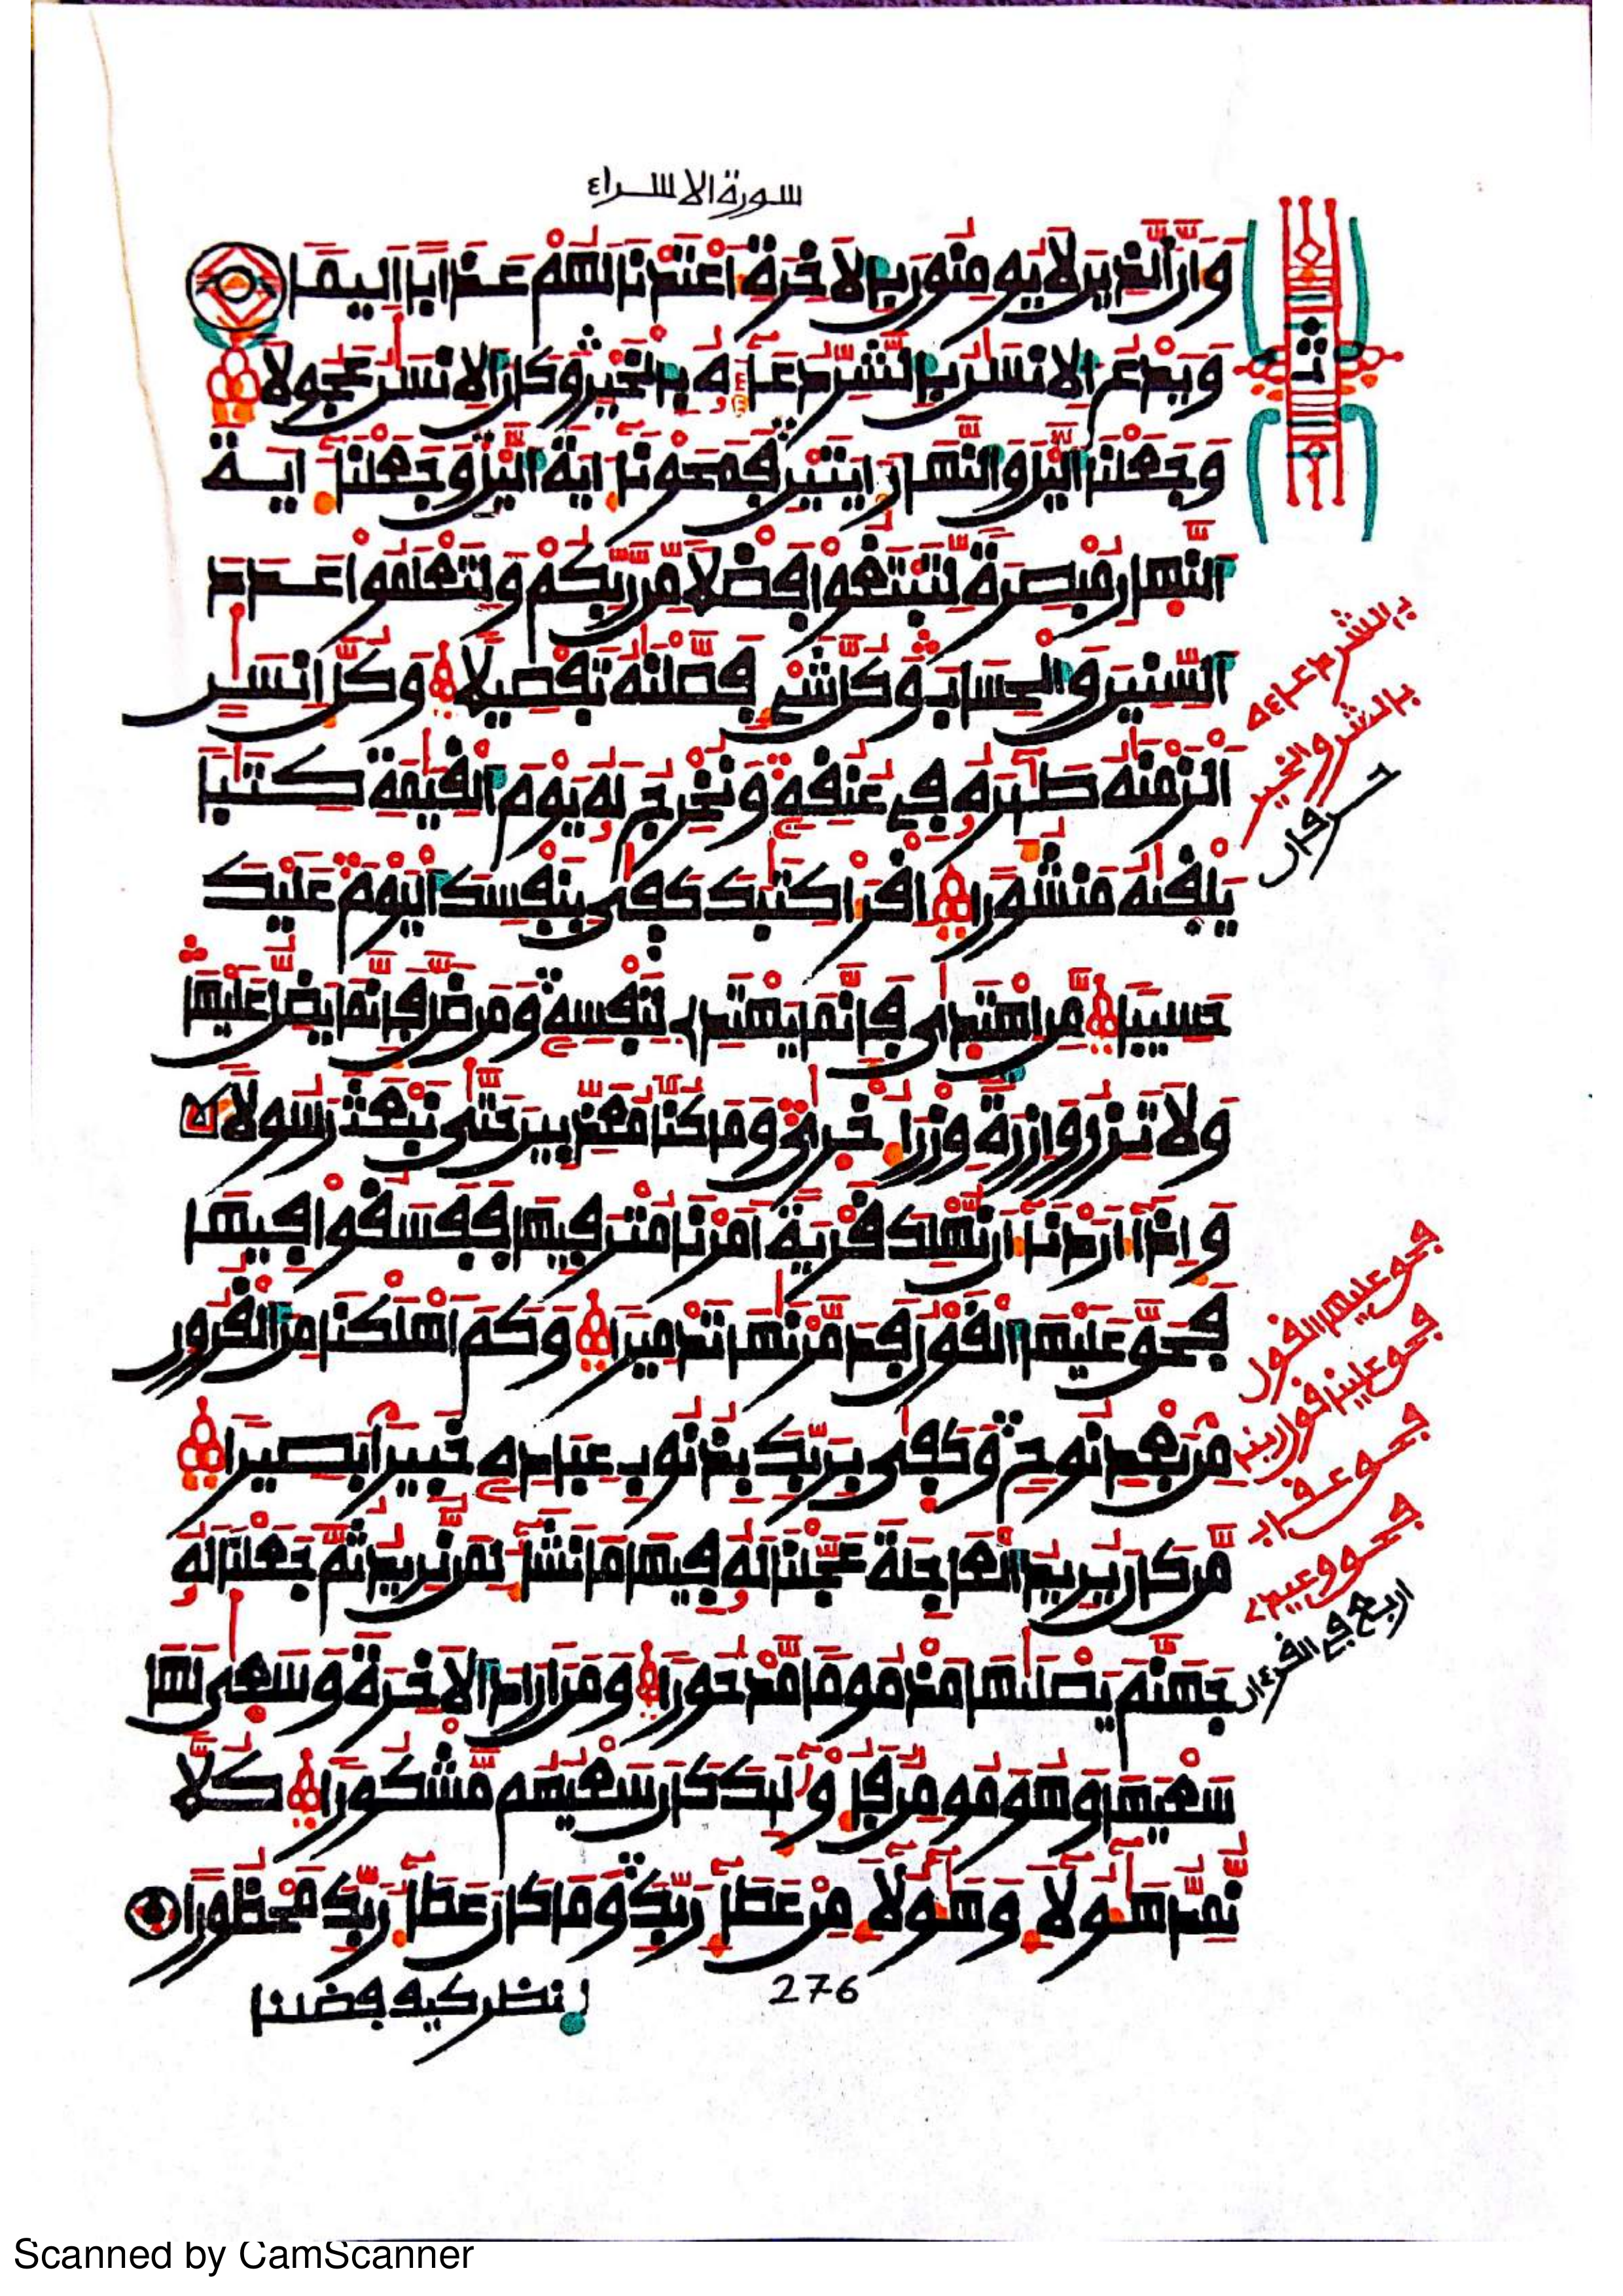 سورة الاسراء
وَأَنَّ ٱلذِينَ لَا يُومِنُونَ بِٱلَاخِرَةِ أَعْتَدْنَا لَهُمْ عَذَابًا اَلِيمًا
وَيَدْعُ ٱلِانسَٰنُ بِٱلشَّرِّ دُعَآءَهُۥ بِٱلْخَيْرِ وَكَانَ ٱلِانسَٰنُ عَجُولًا
وَجَعَلْنَا ٱلَّيْلَ وَٱلنَّهَارَ ءَايَتَيْنِ فَمَحَوْنَآ ءَايَةَ ٱلَّيْلِ وَجَعَلْنَآ ءَايَةَ
ٱلنَّهَارِ مُبْصِرَةً لِّتَبْتَغُوا۟ فَضْلًا مِّن رَّبِّكُمْ وَلِتَعْلَمُوا۟ عَدَدَ
ٱلسِّنِينَ وَٱلْحِسَابَ وَكُلَّ شَيْءٍ فَصَّلْنَٰهُ تَفْصِيلًا وَكُلَّ إِنسَٰنٍ
اَلْزَمْنَٰهُ طَٰٓئِرَهُۥ فِي عُنُقِهِۦ وَنُخْرِجُ لَهُۥ يَوْمَ ٱلْقِيَٰمَةِ كِتَٰبًا
يَلْقَىٰهُ مَنشُورًا اِقْرَأْ كِتَٰبَكَ كَفَىٰ بِنَفْسِكَ ٱلْيَوْمَ عَلَيْكَ
حَسِيبًا مَّنِ ٱهْتَدَىٰ فَإِنَّمَا يَهْتَدِي لِنَفْسِهِۦ وَمَن ضَلَّ فَإِنَّمَا يَضِلُّ عَلَيْهَا
وَلَا تَزِرُ وَازِرَةٌ وِزْرَ أُخْرَىٰ وَمَا كُنَّا مُعَذِّبِينَ حَتَّىٰ نَبْعَثَ رَسُولًا
وَإِذَآ أَرَدْنَآ أَن نُّهْلِكَ قَرْيَةً اَمَرْنَا مُتْرَفِيهَا فَفَسَقُوا۟ فِيهَا
فَحَقَّ عَلَيْهَا ٱلْقَوْلُ فَدَمَّرْنَٰهَا تَدْمِيرًا وَكَمَ اَهْلَكْنَا مِنَ ٱلْقُرُونِ
مِنۢ بَعْدِ نُوحٍ وَكَفَىٰ بِرَبِّكَ بِذُنُوبِ عِبَادِهِۦ خَبِيرًۢا بَصِيرًا
مَّن كَانَ يُرِيدُ ٱلْعَاجِلَةَ عَجَّلْنَا لَهُۥ فِيهَا مَا نَشَآءُ لِمَن نُّرِيدُ ثُمَّ جَعَلْنَا لَهُۥ
جَهَنَّمَ يَصْلَىٰهَا مَذْمُومًا مَّدْحُورًا وَمَنَ اَرَادَ ٱلَاخِرَةَ وَسَعَىٰ لَهَا
سَعْيَهَا وَهُوَ مُومِنٌ فَأُو۟لَٰٓئِكَ كَانَ سَعْيُهُم مَّشْكُورًا كُلًّا
نُّمِدُّ هَٰٓؤُلَآءِ وَهَٰٓؤُلَآءِ مِنْ عَطَآءِ رَبِّكَ وَمَا كَانَ عَطَآءُ رَبِّكَ مَحْظُورًا
276
انظر كيف فضلنا
ثمن
بالشر دعاءه
بالشر والخير
حرفان
فحق عليها القول
فحق علينا قول ربنا
فحق عقاب
فحق وعيد
اربع في القرءان
Scanned by CamScanner